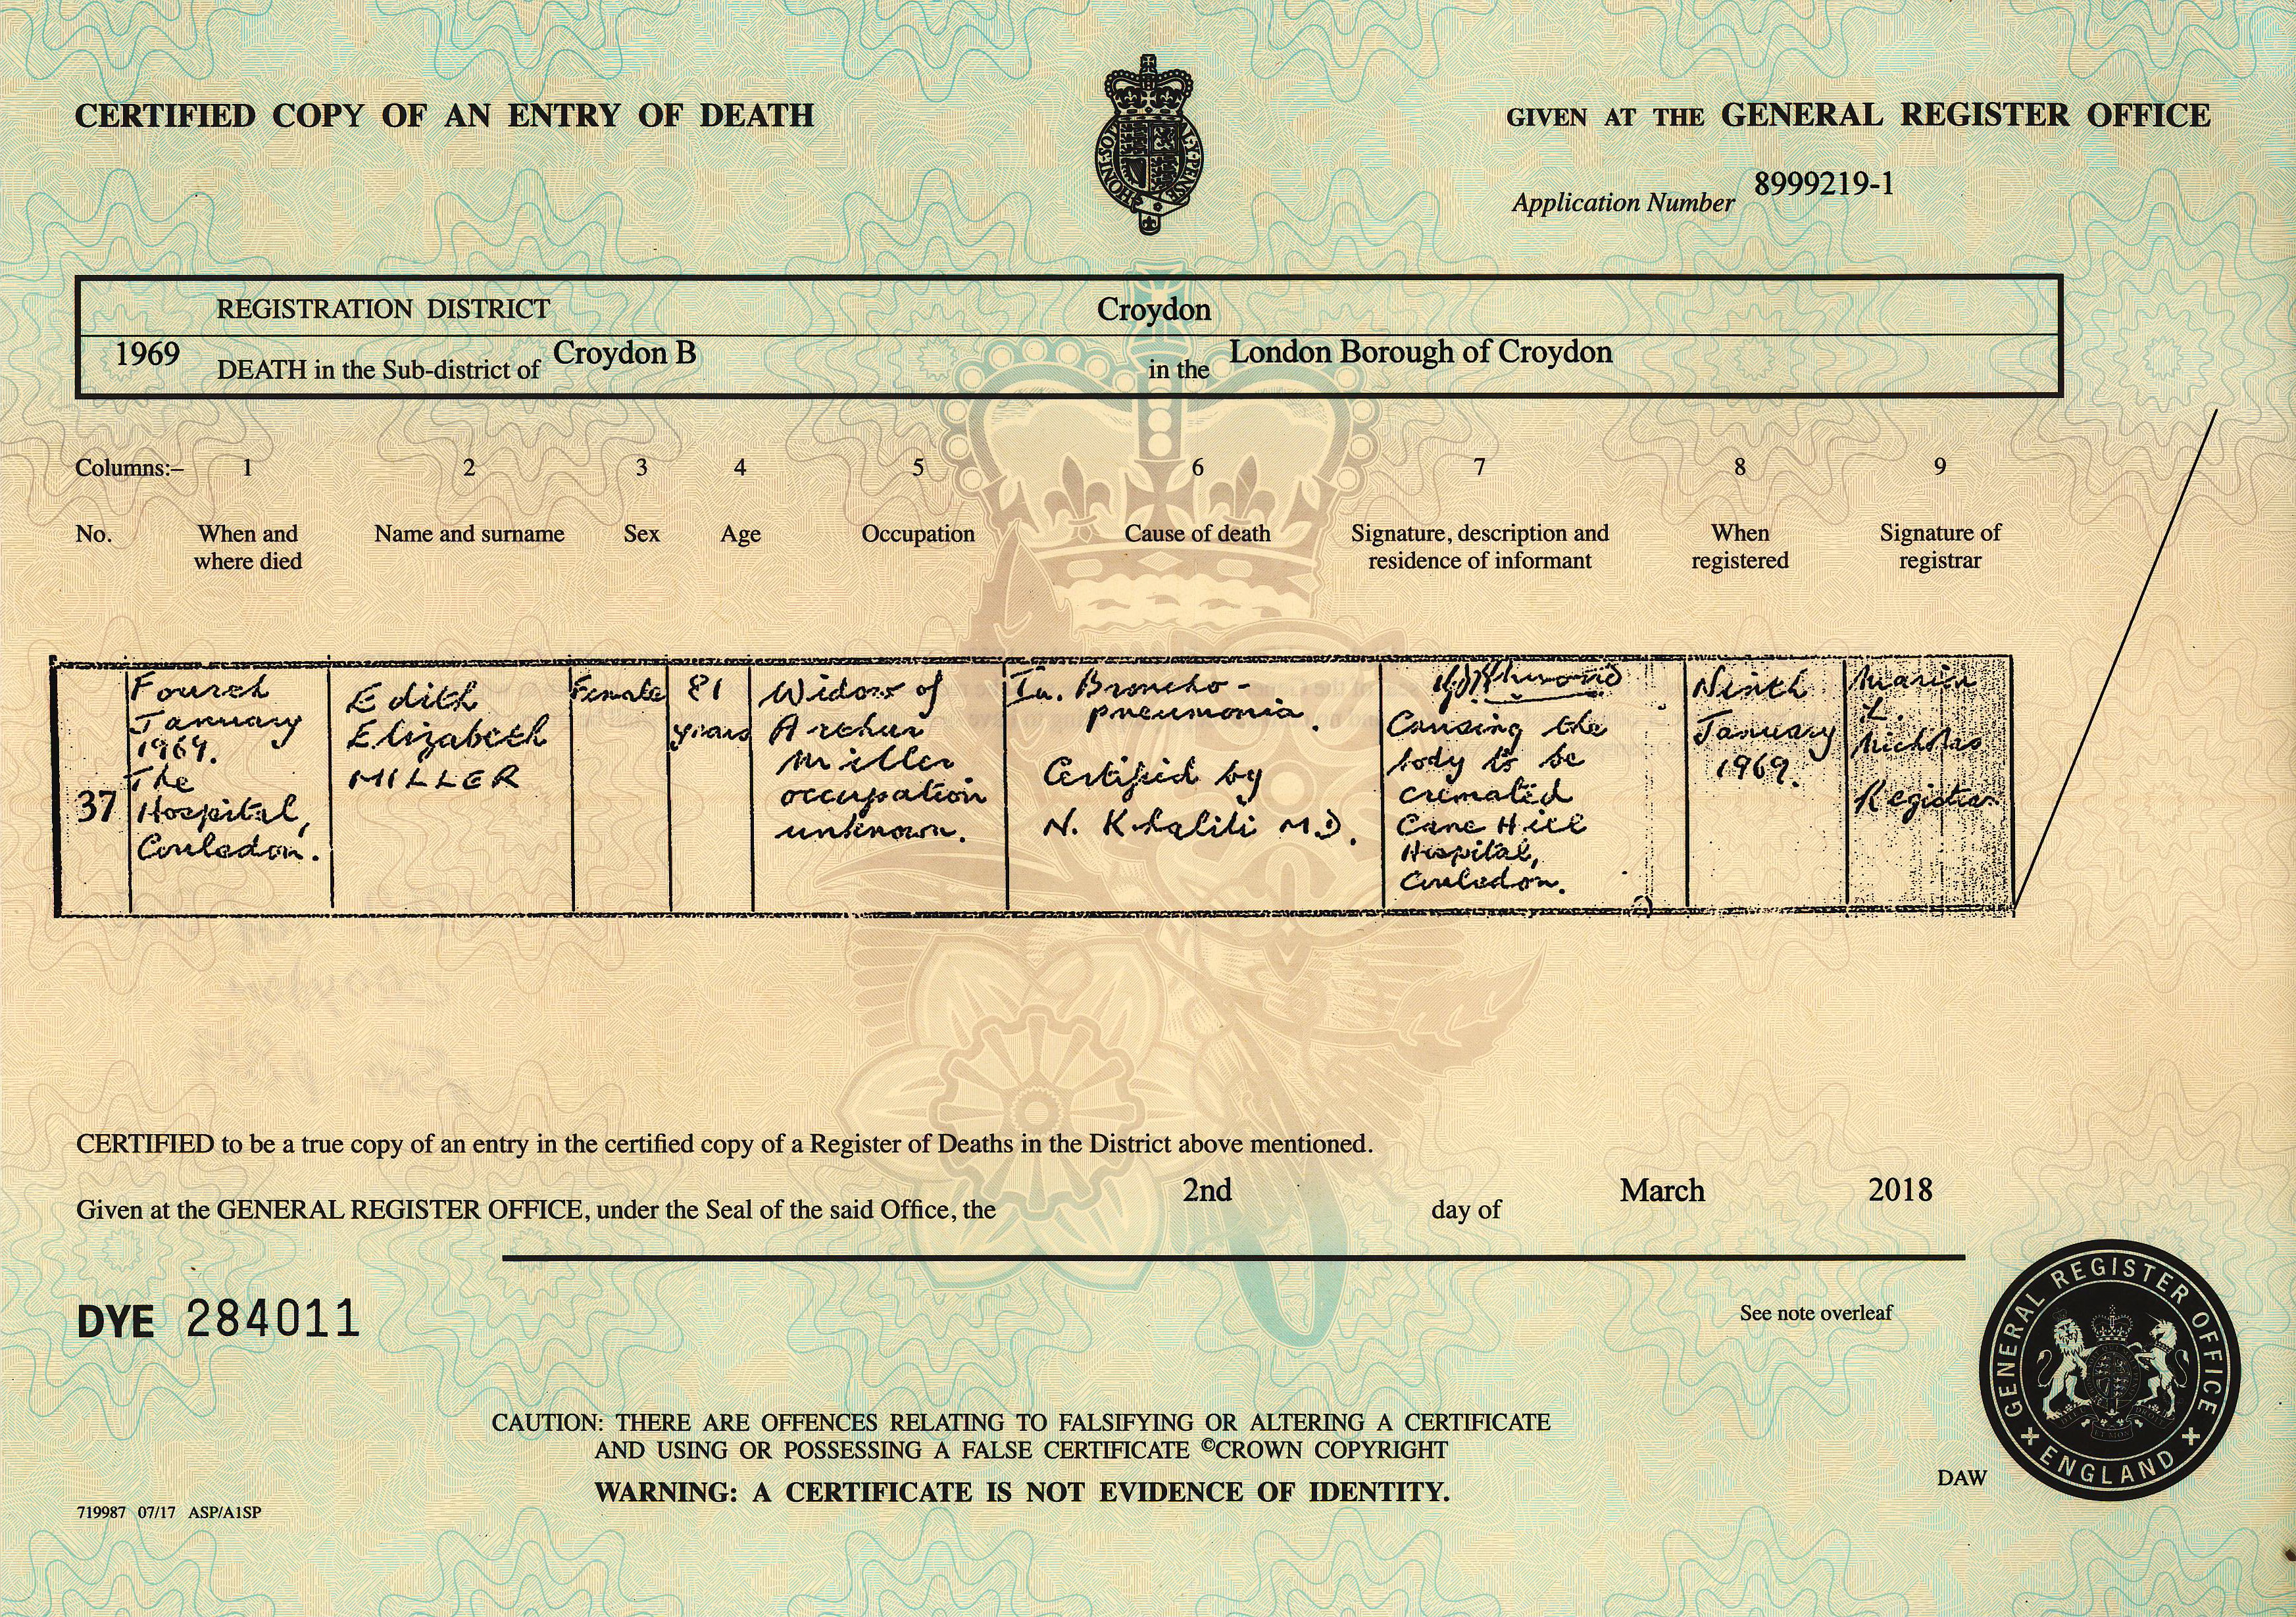 CERTIFIED COPY OF AN ENTRY OF DEATH
GIVEN AT THE GENERAL REGISTER OFFICE
Application Number 8999219-1
REGISTRATION DISTRICT Croydon
1969 DEATH in the Sub-district of Croydon B in the London Borough of Croydon
Columns:– 1 2 3 4 5 6 7 8 9
No.
When and
where died
Name and surname
Sex
Age
Occupation
Cause of death
Signature, description and
residence of informant
When
registered
Signature of
registrar
37
Fourth
January
1969.
The
Hospital,
Coulsdon.
Edith
Elizabeth
MILLER
Female
81
years
Widow of
Arthur
Miller
occupation
unknown.
Ia. Broncho-
pneumonia.
Certified by
N. Khalili M.D.
Causing the
body to be
cremated
Cane Hill
Hospital,
Coulsdon.
Ninth
January
1969.
Marion
L.
Nicholas
Registrar
CERTIFIED to be a true copy of an entry in the certified copy of a Register of Deaths in the District above mentioned.
Given at the GENERAL REGISTER OFFICE, under the Seal of the said Office, the 2nd day of March 2018
DYE 284011
See note overleaf
GENERAL REGISTER OFFICE
ENGLAND
CAUTION: THERE ARE OFFENCES RELATING TO FALSIFYING OR ALTERING A CERTIFICATE
AND USING OR POSSESSING A FALSE CERTIFICATE ©CROWN COPYRIGHT
WARNING: A CERTIFICATE IS NOT EVIDENCE OF IDENTITY.
DAW
719987 07/17 ASP/A1SP